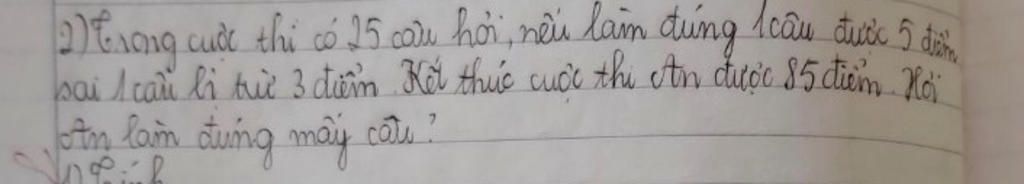 2) Trong cuộc thi có 25 câu hỏi, nếu làm đúng 1 câu được 5 điểm
sai 1 câu bị trừ 3 điểm. Kết thúc cuộc thi An được 85 điểm. Hỏi
An làm đúng mấy câu?